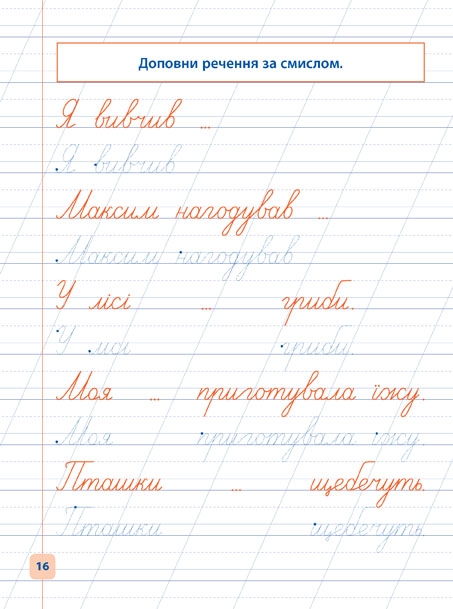 Доповни речення за смислом.
Я вивчив ...
Я вивчив
Максим нагодував ...
Максим нагодував
У лісі ... гриби.
У лісі гриби.
Моя ... приготувала їжу.
Моя приготувала їжу.
Пташки ... щебечуть.
Пташки щебечуть.
16